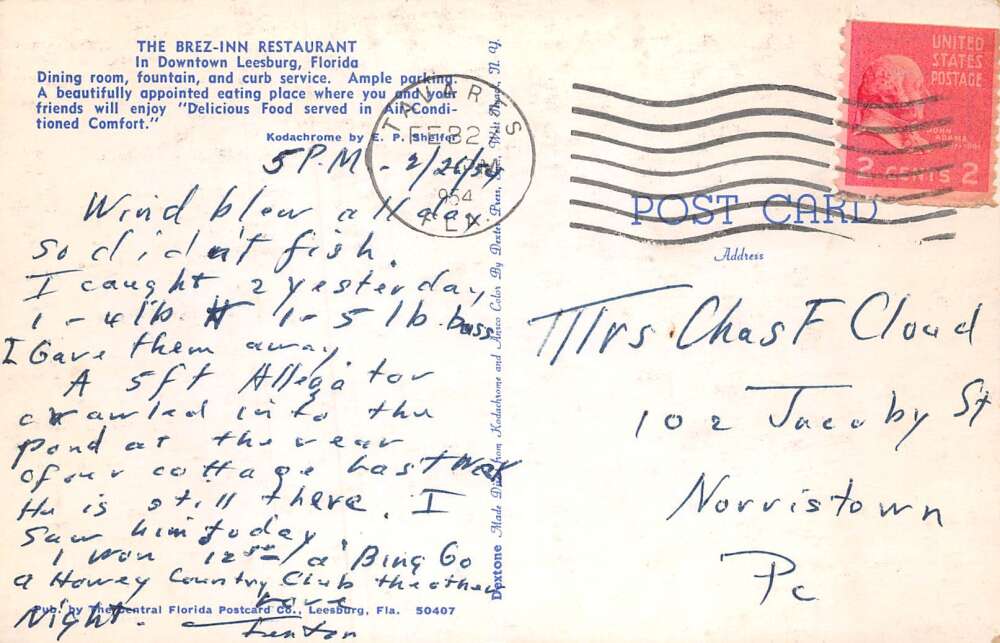 THE BREZ-INN RESTAURANT
In Downtown Leesburg, Florida
Dining room, fountain, and curb service. Ample parking.
A beautifully appointed eating place where you and your
friends will enjoy "Delicious Food served in Air Condi-
tioned Comfort."
Kodachrome by E. P.
5 P.M - 2/26/54
Wind blew all day
so didn't fish.
I caught 2 yesterday
1 - 4 lb 1 - 5 lb bass
I Gave them away.
A 5ft Allegator
crawled into the
pond at the rear
of our cottage last
He is still there. I
saw him today
I won 12 a Bing Go
a Howey Country Club the other
Night. Love
Fenton
Pub. by The Central Florida Postcard Co., Leesburg, Fla. 50407
Dextone Made from Kodachrome and Ansco Color By Dexter Press, West Nyack, N. Y.
TAVARES
FEB 2
1954
FLA.
UNITED
STATES
POSTAGE
JOHN
ADAMS
2 CENTS 2
POST CARD
Address
Mrs. Chas F Cloud
102 Jacoby St
Norristown
Pa